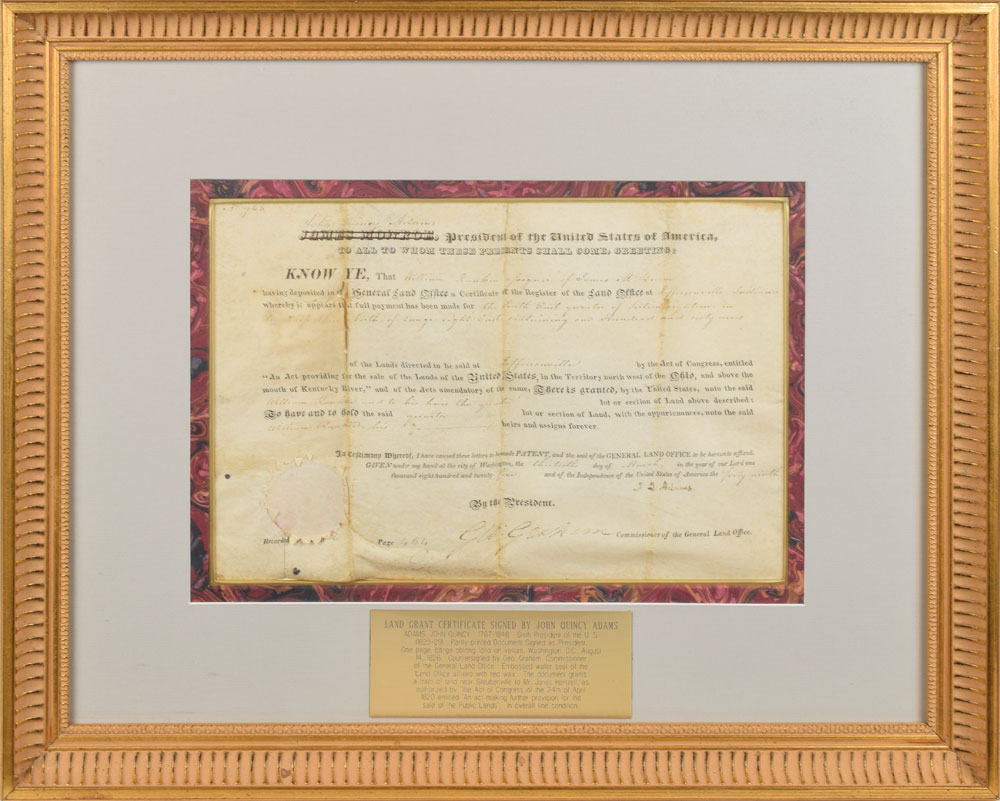 John Quincy Adams
JAMES MONROE, President of the United States of America,
TO ALL TO WHOM THESE PRESENTS SHALL COME, GREETING:
KNOW YE, That William Rankin assignee of James M
having deposited in the General Land Office a Certificate of the Register of the Land Office at Jeffersonville Indiana
whereby it appears that full payment has been made for the South East quarter of section
North of range eight East containing one Hundred and sixty acres
of the Lands directed to be sold at Jeffersonville by the Act of Congress, entitled
"An Act providing for the sale of the Lands of the United States, in the Territory north west of the Ohio, and above the
mouth of Kentucky River," and of the Acts amendatory of the same, There is granted, by the United States, unto the said
William Rankin and to his heirs the quarter lot or section of Land above described:
To have and to hold the said quarter lot or section of Land, with the appurtenances, unto the said
William Rankin his heirs and assigns forever.
In Testimony Whereof, I have caused these letters to be made PATENT, and the seal of the GENERAL LAND OFFICE to be hereunto affixed.
GIVEN under my hand at the city of Washington, the thirtieth day of March in the year of our Lord one
thousand eight hundred and twenty five and of the Independence of the United States of America the forty ninth
J. Q. Adams
By the President.
Geo. Graham Commissioner of the General Land Office.
Recorded Page 464
LAND GRANT CERTIFICATE SIGNED BY JOHN QUINCY ADAMS
ADAMS, JOHN QUINCY. 1767-1848. Sixth President of the U. S.
(1825-29). Partly printed Document Signed as President.
One page, large oblong folio on vellum, Washington, D.C. August
14, 1826. Countersigned by Geo. Graham, Commissioner
of the General Land Office. Embossed wafer seal of the
Land Office affixed with red wax. The document grants
a tract of land near Steubenville to Mr. Jonas Hentzell, as
authorized by "the Act of Congress of the 24th of April
1820 entitled "An act making further provision for the
sale of the Public Lands". In overall fine condition.